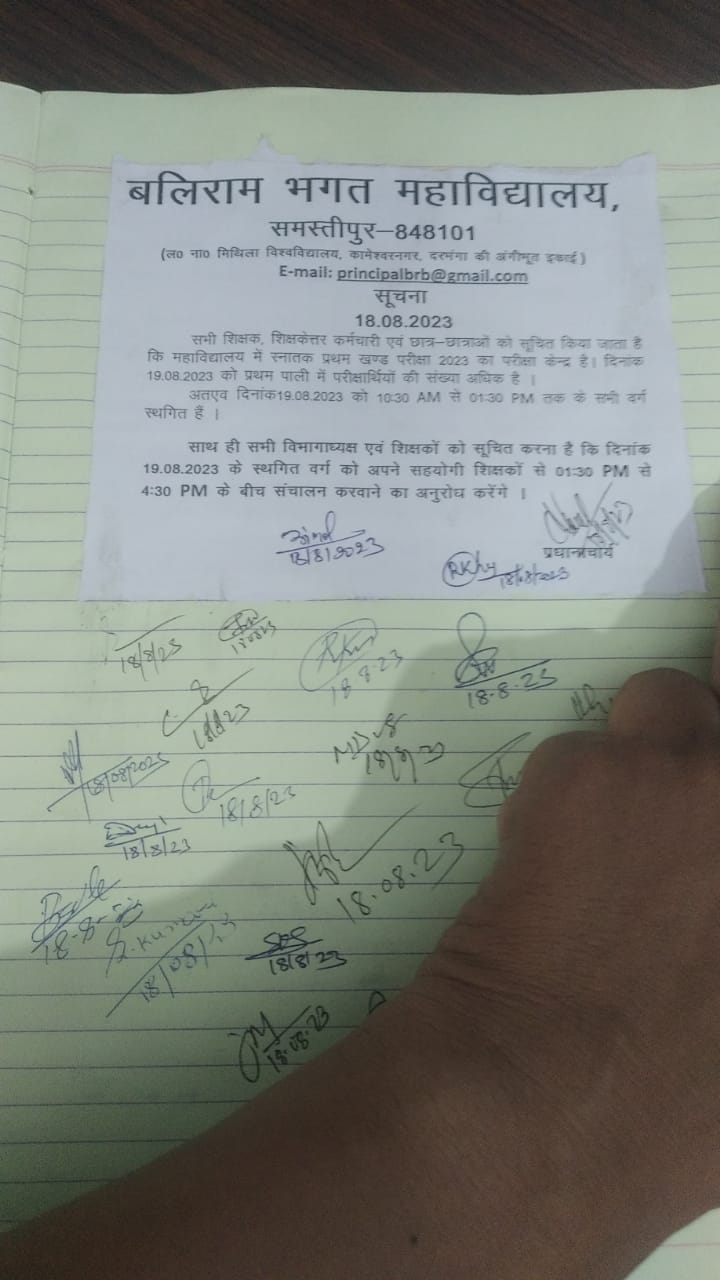 बलिराम भगत महाविद्यालय,
समस्तीपुर–848101
(ल० ना० मिथिला विश्वविद्यालय, कामेश्वरनगर, दरभंगा की अंगीभूत इकाई)
E-mail: principalbrb@gmail.com
सूचना
18.08.2023
सभी शिक्षक, शिक्षकेत्तर कर्मचारी एवं छात्र–छात्राओं को सूचित किया जाता है
कि महाविद्यालय में स्नातक प्रथम खण्ड परीक्षा 2023 का परीक्षा केन्द्र है। दिनांक
19.08.2023 को प्रथम पाली में परीक्षार्थियों की संख्या अधिक है ।
अतएव दिनांक19.08.2023 को 10:30 AM से 01:30 PM तक के सभी वर्ग
स्थगित हैं ।
साथ ही सभी विभागाध्यक्ष एवं शिक्षकों को सूचित करना है कि दिनांक
19.08.2023 के स्थगित वर्ग को अपने सहयोगी शिक्षकों से 01:30 PM से
4:30 PM के बीच संचालन करवाने का अनुरोध करेंगे ।
18/8/2023
प्रधानाचार्य
18/8/2023
18/8/23
18.08.23
18.8.23
18.8.23
18/8/23
18/8/23
18/08/2023
18/8/23
18/8/23
18.08.23
18-8-
Kumar
18/08/23
18/8/23
18.08.23